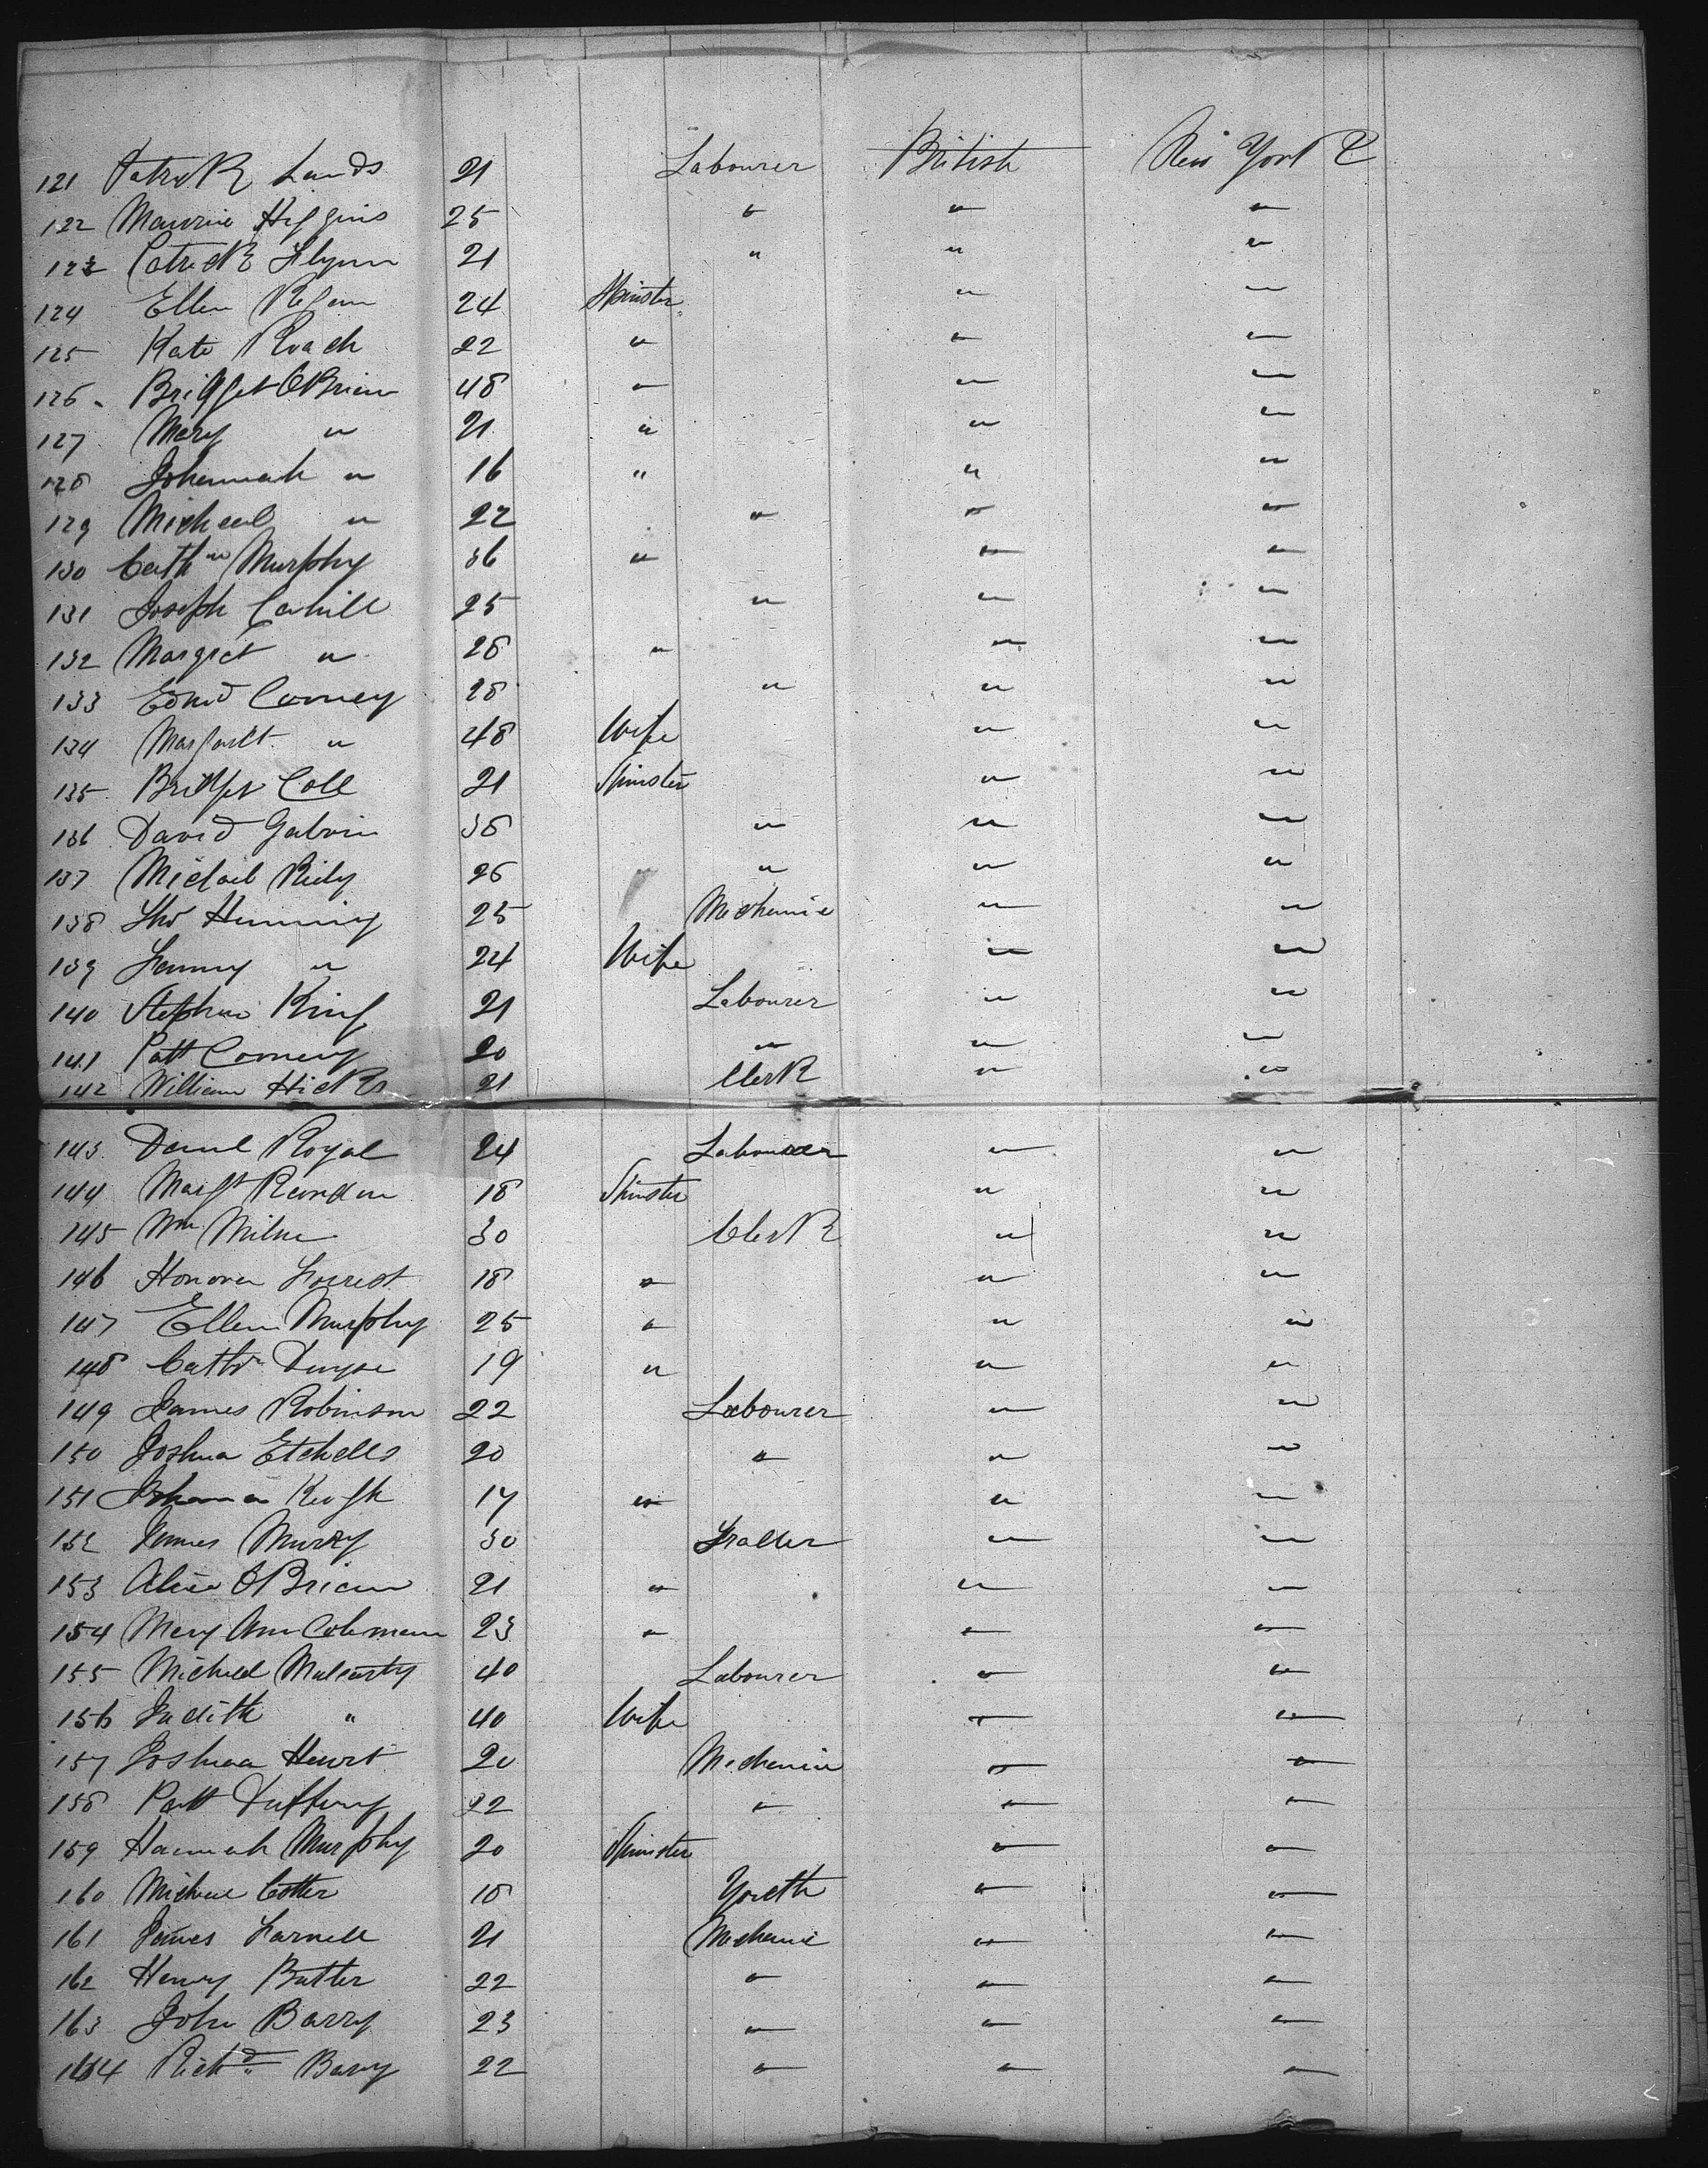 121 Patrick Lands 21 Labourer British New York C
122 Maurice Higgins 25 " " "
123 Patrick Flynn 21 " " "
124 Ellen Regan 24 Spinster " "
125 Kate Roach 22 " " "
126 Bridget OBrien 48 " " "
127 Mary " 21 " " "
128 Johannah " 16 " " "
129 Micheal " 22 " " "
130 Cathne Murphy 36 " " "
131 Joseph Cahill 25 " " "
132 Margret " 28 " " "
133 Edmd Comey 28 " " "
134 Margaret " 48 Wife " "
135 Bridget Coll 21 Spinster " "
136 David Galvin 38 " " "
137 Michail Riely 26 " " "
138 Tho Henning 25 Mechanic " "
139 Fanny " 24 Wife " "
140 Stephen King 21 Labourer " "
141 Patt Comery 20 " " "
142 William Hicks 21 Clerk " "
143 Danl Royal 24 Labourer " "
144 Margt Reardon 18 Spinster " "
145 Wm Milne 30 Clerk " "
146 Honora Forrest 18 " " "
147 Ellen Murphy 25 " " "
148 Cathr 19 " " "
149 James Robinson 22 Labourer " "
150 Joshua Etchells 20 " " "
151 Johanna Keogh 17 " " "
152 James Murry 30 " "
153 Alice OBrien 21 " " "
154 Mary Ann Coleman 23 " " "
155 Michael Mulcarty 40 Labourer " "
156 Judith " 40 Wife " "
157 Joshua Hewst 20 Mechanic " "
158 Patt Duffery 22 " " "
159 Hannah Murphy 20 Spinster " "
160 Michael Cotter 18 Youth " "
161 James Farnell 21 Mechanic " "
162 Henry Butler 22 " " "
163 John Barry 23 " " "
164 Richd Barry 22 " " "